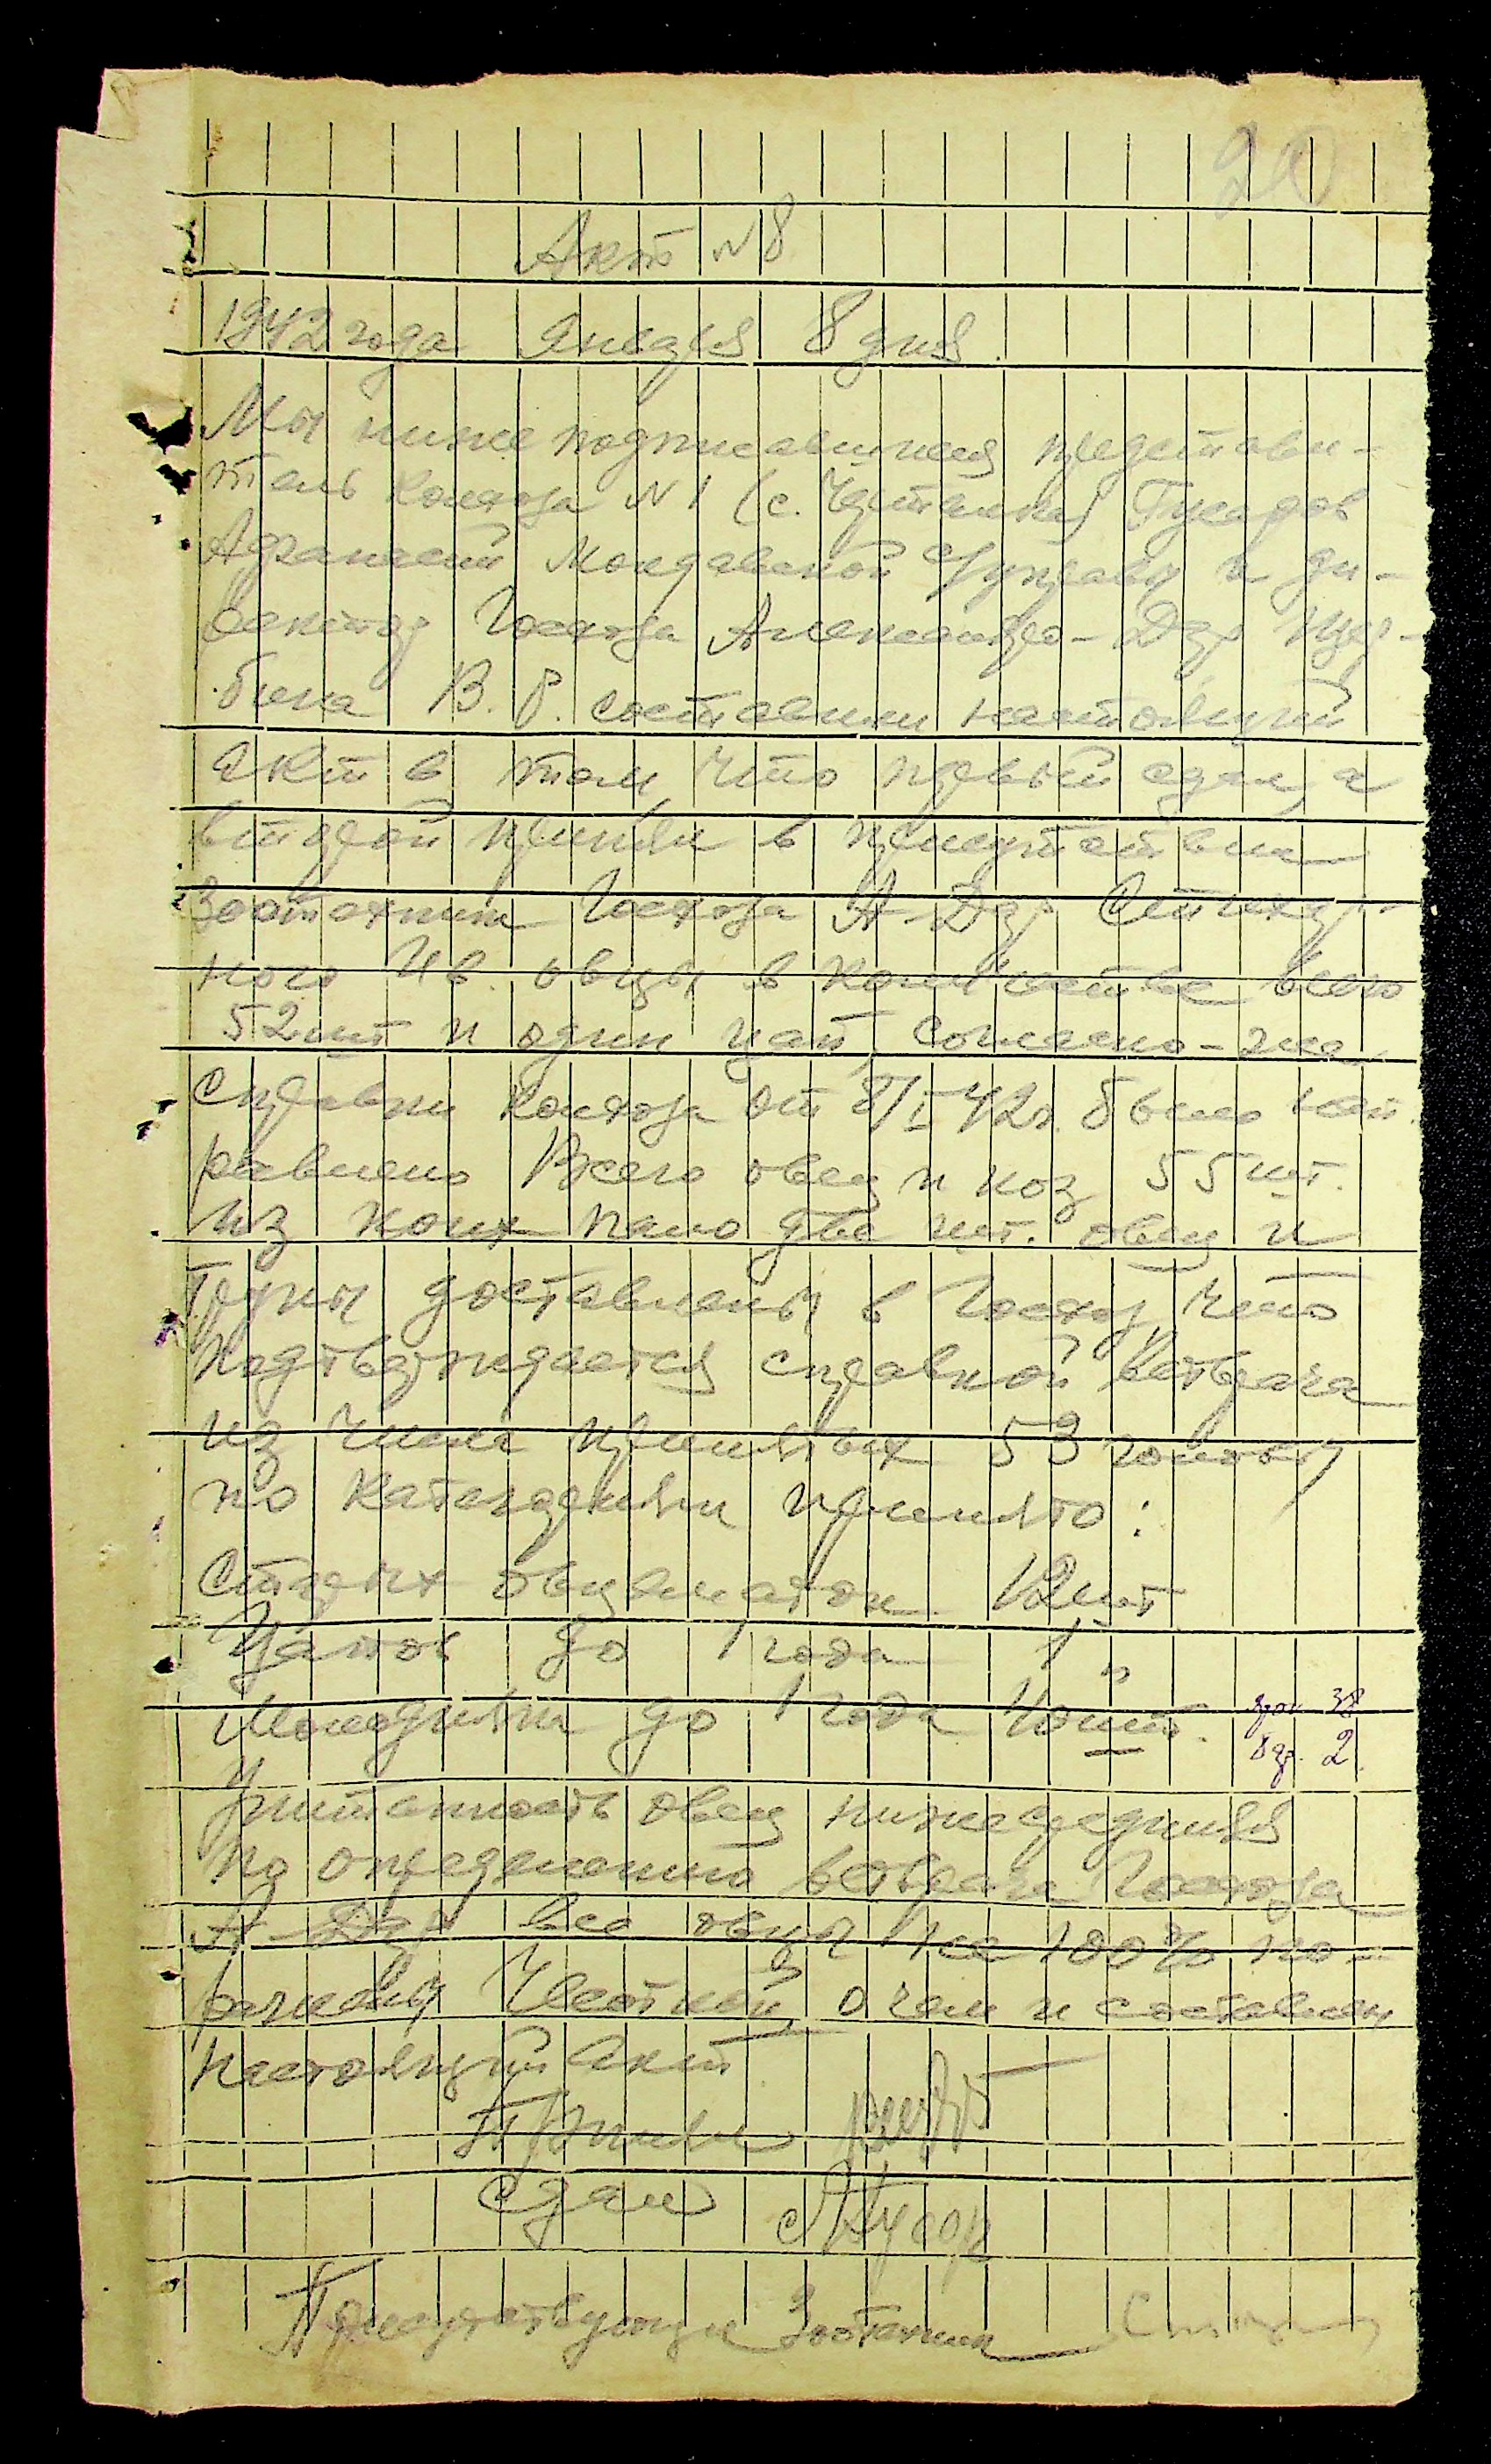 20
Акт №8
1942 года Января 8 дня.
Мы ниже подписавшиеся представи-
тель колхоза №1 (с. ) Гусаров
Афанасий Молдавской С/управы и ди-
ректор Госхоза Александро-Дар Щер-
бина В. Р. составили настоящий
акт в том что первый сдал, а
второй принял в присутствии
Зоотехника Госхоза А-Дар
ного Ив. овцы в количестве всего
52 шт и один цап, согласно
справки колхоза от 8/I-42г. было нап
равлено Всего овец и коз 55 шт.
из коих пало две шт. овец и
Трупы доставлены в Госхоз, что
подтверждается справкой Ветврача
из числа принятых 53 головы
по категориям принято:
Старых овцематок 12 шт
Цапов до 1 года 1 "
Молодняка до 1 года 40 шт. 38
2
Упитанность овец нижесредняя
по определению ветврача Госхоза
А-Дар все овцы на 100% по-
ражены Чесоткой, о чем и составлен
настоящий Акт
Принял
Сдал Гусар
Присутствующий Зоотехник